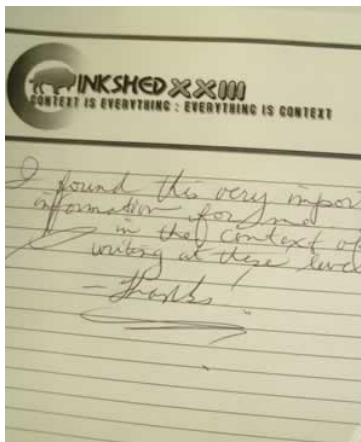 INKSHED XXIII
CONTEXT IS EVERYTHING : EVERYTHING IS CONTEXT
I found this very impor
information for me
in the context of
writing at these leve
- Thanks!